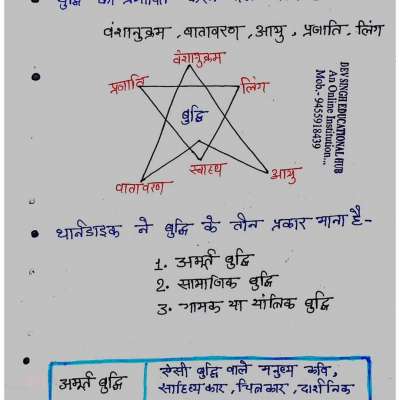 बुद्धि को प्रभावित करने वाले
वंशानुक्रम, वातावरण, आयु, प्रजाति, लिंग
वंशानुक्रम
प्रजाति
लिंग
बुद्धि
स्वास्थ्य
वातावरण
आयु
DEV SINGH EDUCATIONAL HUB
An Online Institution...
Mob.- 9455918439
थार्नडाइक ने बुद्धि के तीन प्रकार माना है-
1. अमूर्त बुद्धि
2. सामाजिक बुद्धि
3. गामक या यांत्रिक बुद्धि
अमूर्त बुद्धि
ऐसी बुद्धि वाले मनुष्य कवि,
साहित्यकार, चित्रकार, दार्शनिक